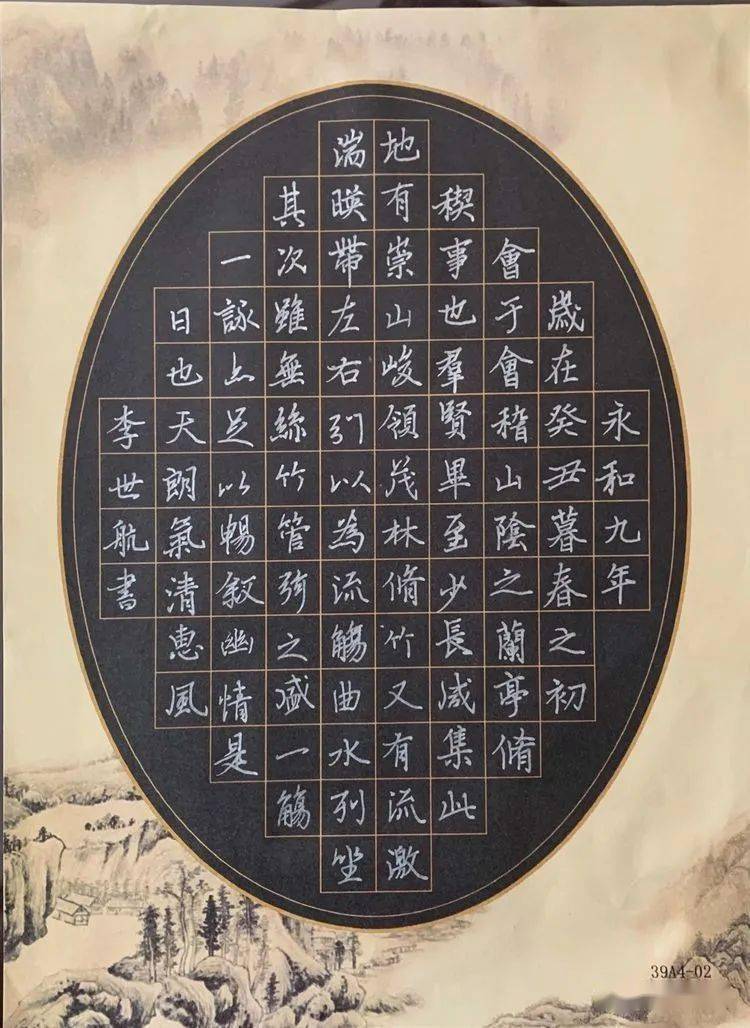 永和九年
歲在癸丑暮春之初
會于會稽山陰之蘭亭脩
稧事也羣賢畢至少長咸集此
地有崇山峻領茂林脩竹又有流激
湍暎帶左右引以為流觴曲水列坐
其次雖無絲竹管弦之盛一觴
一詠亦足以暢叙幽情是
日也天朗氣清惠風
李世航書
39A4-02